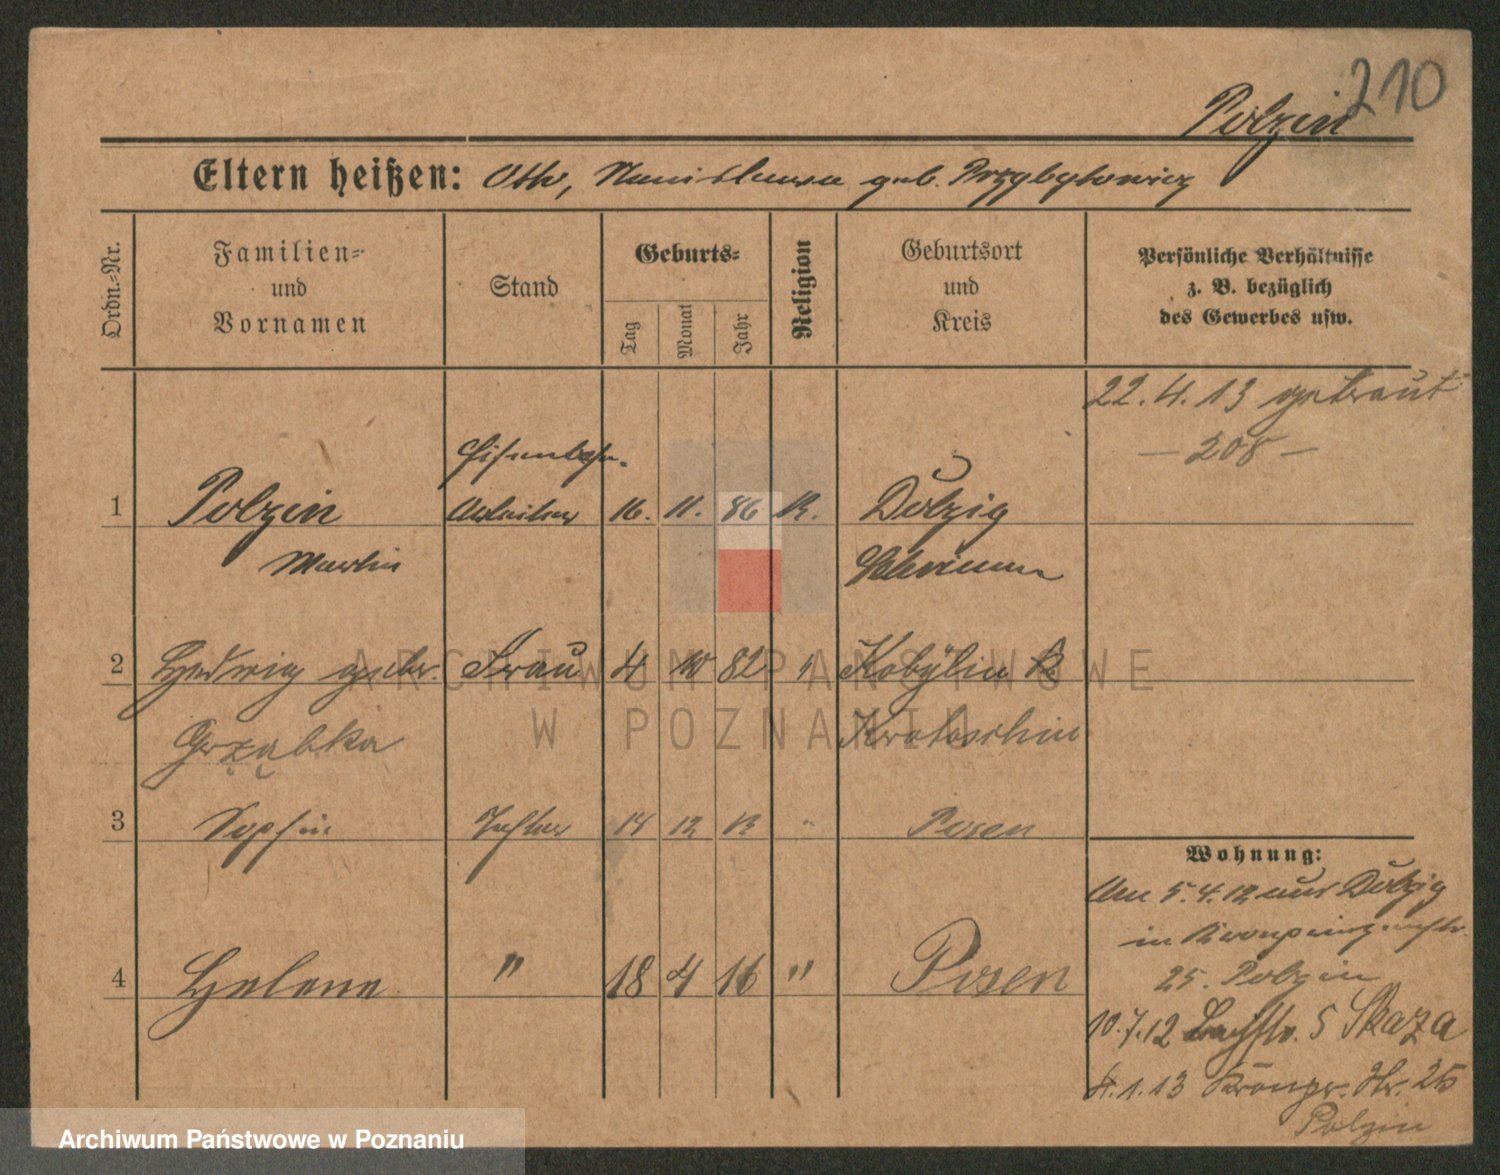 210
Polzin
Eltern heißen: Otto, Stanislawa geb. Przybylowicz
Ordn.-Nr.
Familien-
und
Vornamen
Stand
Geburts-
Tag
Monat
Jahr
Religion
Geburtsort
und
Kreis
Persönliche Verhältnisse
z. B. bezüglich
des Gewerbes usw.
22.4.13 getraut
— 208 —
1 Polzin Eisenbahn- Arbeiter 16. 11. 86 K. Dolzig
Martin Schrimm
2 Hedwig gebr. Frau 4 10 82 " Kobylin K
Grząbka Krotoschin
3 Sophie Tochter 14 12 13 " Posen
4 Helene " 18 4 16 " Posen
Wohnung:
Am 5.4.12 aus Dolzig
in Kronprinzenstr.
25. Polzin
10.7.12 Bachstr. 5 Skaza
4.1.13 Kronpr. Str. 25
Polzin
ARCHIWUM PAŃSTWOWE
W POZNANIU
Archiwum Państwowe w Poznaniu